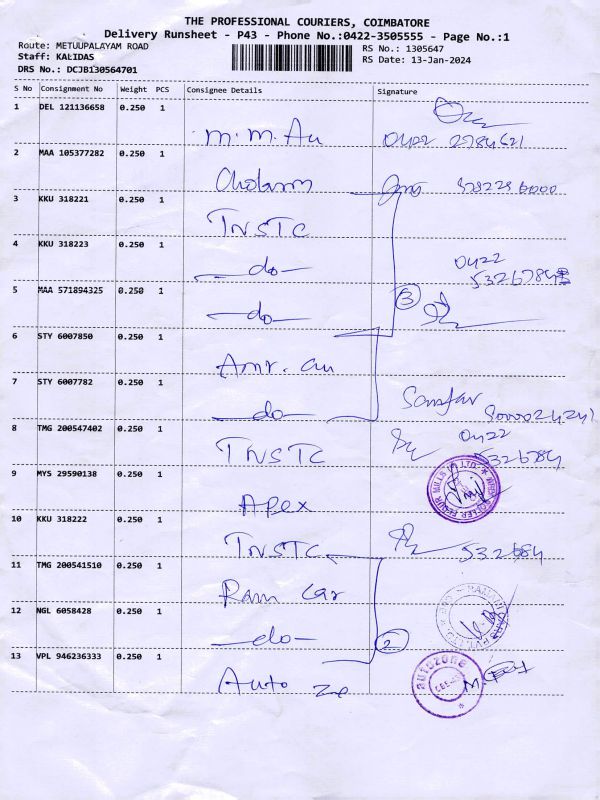 THE PROFESSIONAL COURIERS, COIMBATORE
Delivery Runsheet - P43 - Phone No.:0422-3505555 - Page No.:1
Route: METUUPALAYAM ROAD
RS No.: 1305647
Staff: KALIDAS
RS Date: 13-Jan-2024
DRS No.: DCJB130564701
S No Consignment No Weight PCS Consignee Details Signature
1 DEL 121136658 0.250 1
M.M.Au 0422 2784621
2 MAA 105377282 0.250 1
Cholam
3 KKU 318221 0.250 1
TNSTC
4 KKU 318223 0.250 1
do 0422
5 MAA 571894325 0.250 1
do 3
6 STY 6007850 0.250 1
Amr. Au
7 STY 6007782 0.250 1
do
8 TMG 200547402 0.250 1
TNSTC 0422 5326784
9 MYS 29590138 0.250 1
Apex
10 KKU 318222 0.250 1
TNSTC
11 TMG 200541510 0.250 1
Ram Car
12 NGL 6058428 0.250 1
do 2
13 VPL 946236333 0.250 1
Auto ze
autozone